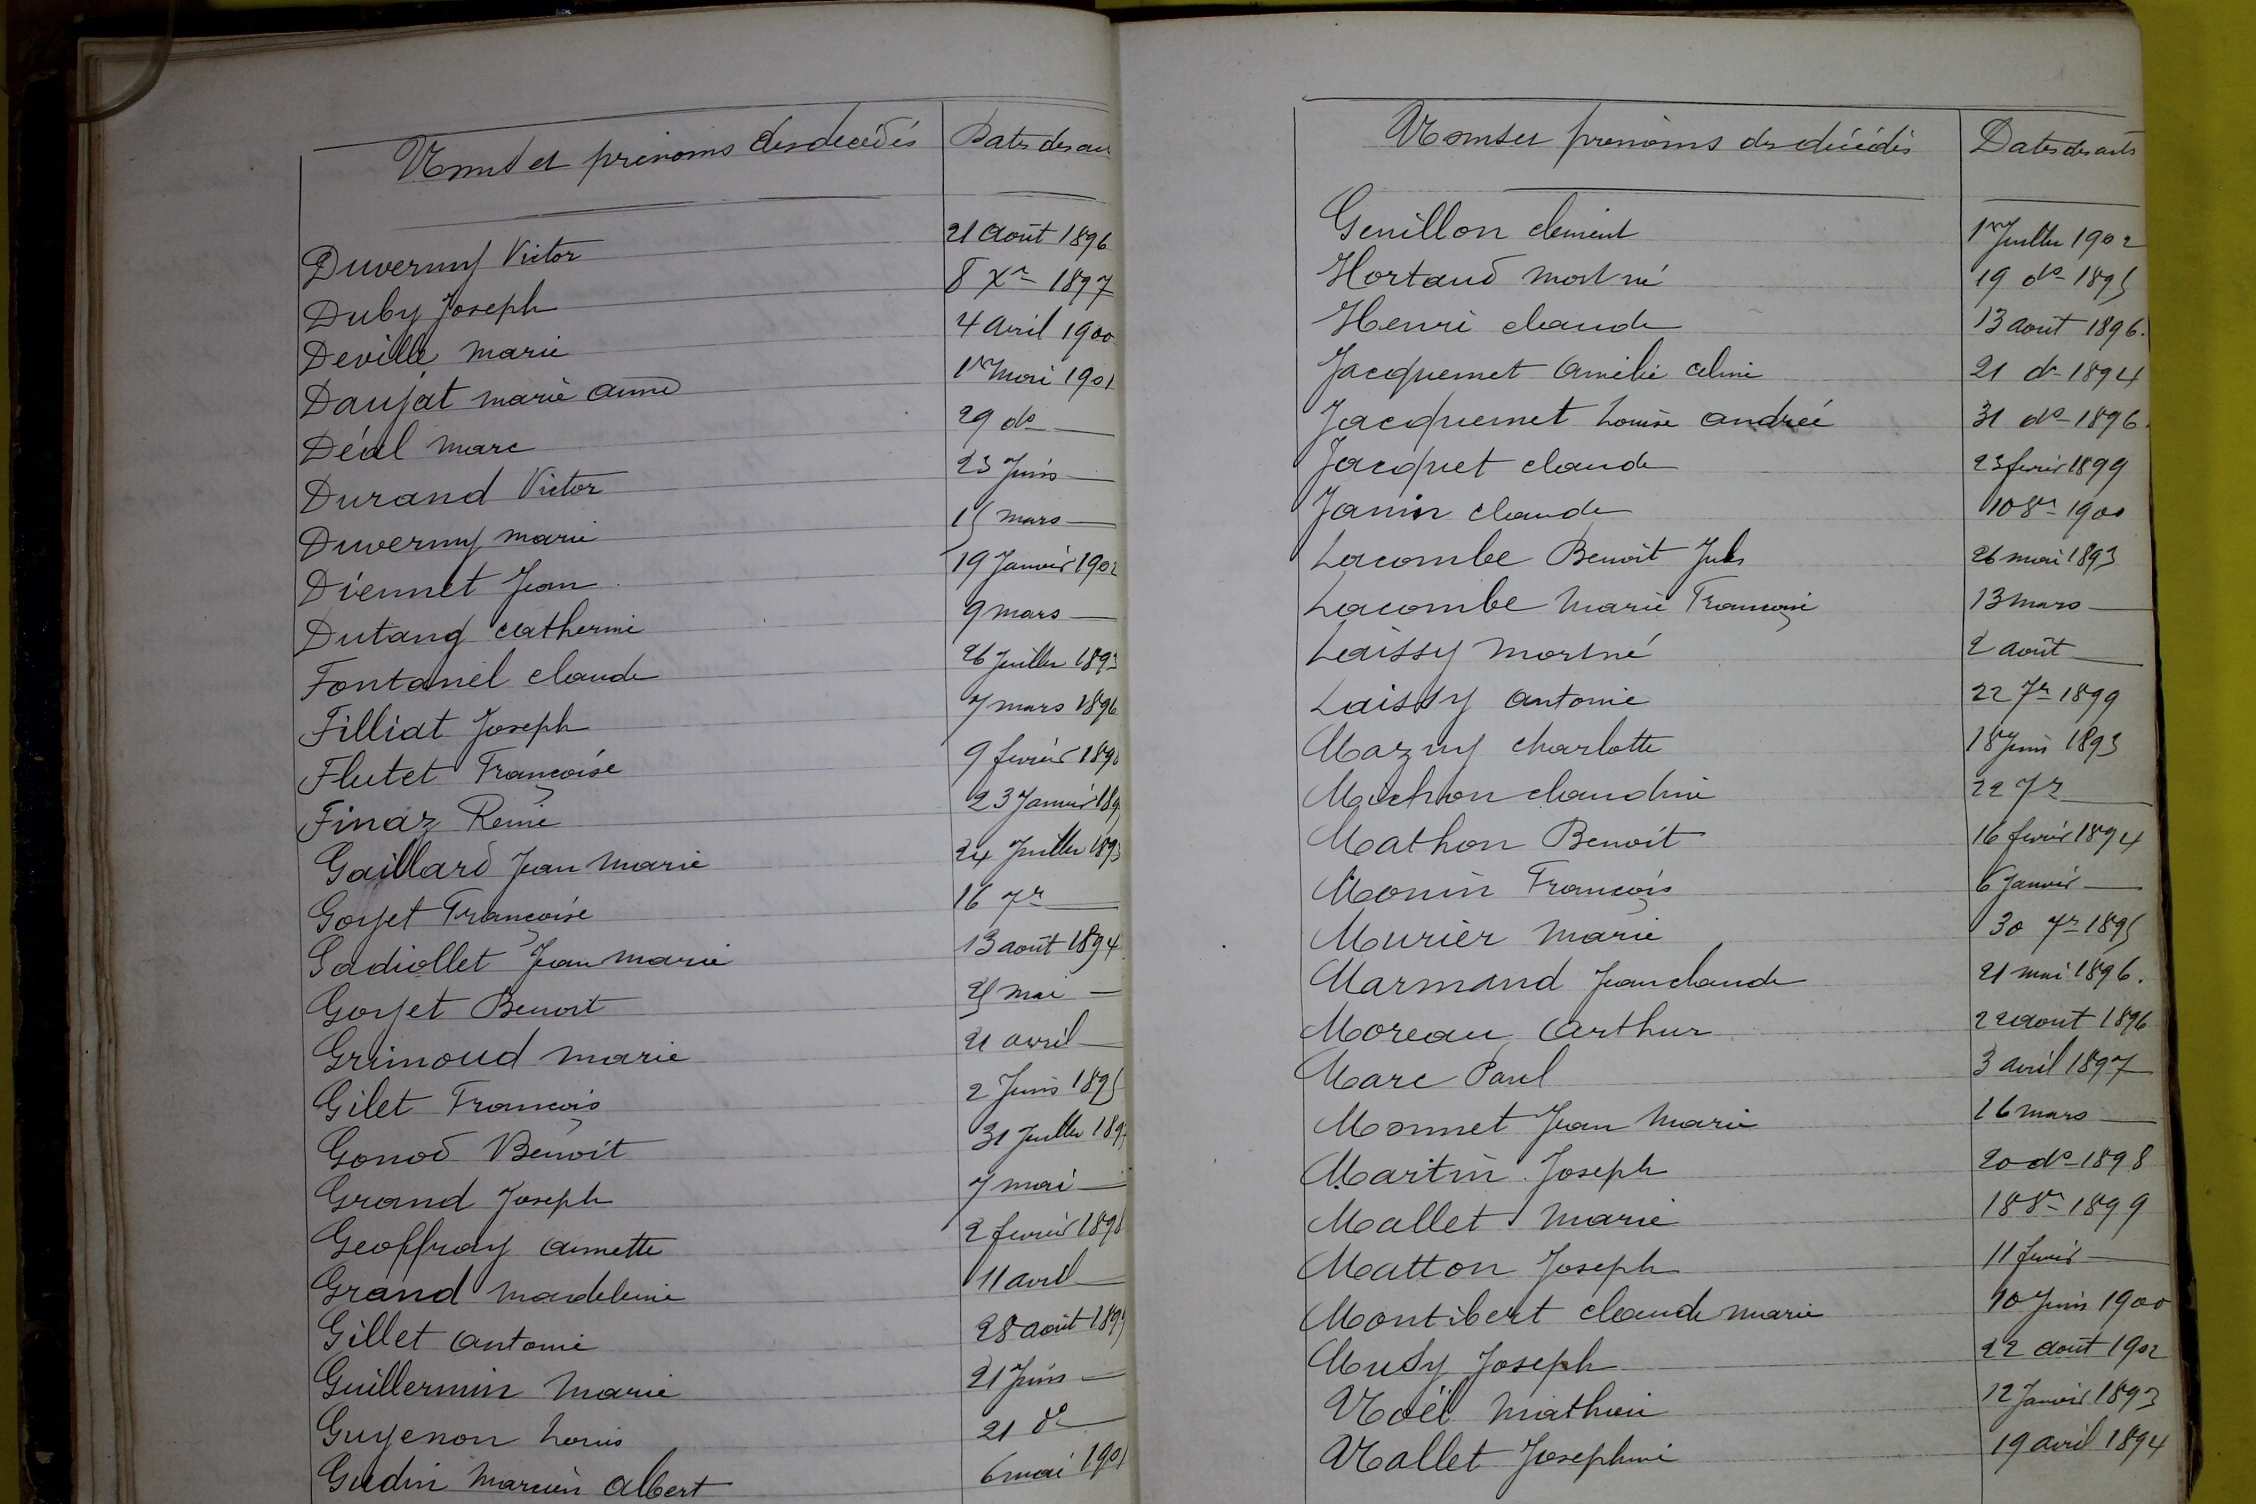 Noms et prénoms des décédés Dates des
Duverny Victor 21 août 1896
Duby Joseph 8 Xre 1897
Deville Marie 4 avril 1900
Daujat marie anne 1er Mai 1901
Déal Marc 29 do
Durand Victor 23 Juin
Duverny marie 15 mars
Diennet Jean 19 Janvier 1902
Dutang Catherine 9 mars
Fontanel Claude 26 Juillet 1893
Filliat Joseph 7 mars 1896
Flutet Françoise 9 février
Finaz Reine 23 Janvier
Gaillard Jean Marie 24 Juillet 1893
Goyet Françoise 16 7re
Gadiollet Jean Marie 13 août 1894
Goyet Benoit 25 mai
Grimoud Marie 21 avril
Gilet François 2 Juin 1895
Gonod Benoit 31 Juillet
Grand Joseph 7 mai
Geoffray annette 2 février 1898
Grand Madeleine 11 avril
Gillet antoine 28 août
Guillermin Marie 21 Juin
Guyenon Louis 21 do
Gudin Marcien Albert 6 mai 1901
Noms et prénoms des décédés Dates des actes
Genillon Clément 1er Juillet 1902
Hortaud mort né 19 do 1895
Henri Claude 13 août 1896.
Jacquemet Amélie Celine 21 do 1894
Jacquemet Louise andrée 31 do 1896.
Jacquet Claude 23 février 1899
Janin Claude 10 8re 1900
Lacombe Benoit Jules 26 mai 1893
Lacombe Marie Françoise 13 mars
Laissy Mort né 2 août
Laissy antoine 22 7re 1899
Mazuy Charlotte 18 Juin 1893
Michon Claudine 22 7re
Mathon Benoit 16 février 1894
Monin François 6 Janvier
Murier Marie 30 7re 1895
Marmand Jean Claude 21 mai 1896.
Moreau Arthur 22 août 1896
Marc Paul 3 avril 1897
Monnet Jean Marie 16 mars
Martin Joseph 20 do 1898
Mallet Marie 18 8re 1899
Matton Joseph 11 février
Montibert Claude Marie 10 Juin 1900
Musy Joseph 22 août 1902
Noël Mathieu 12 Janvier 1893
Nallet Josephine 19 avril 1894